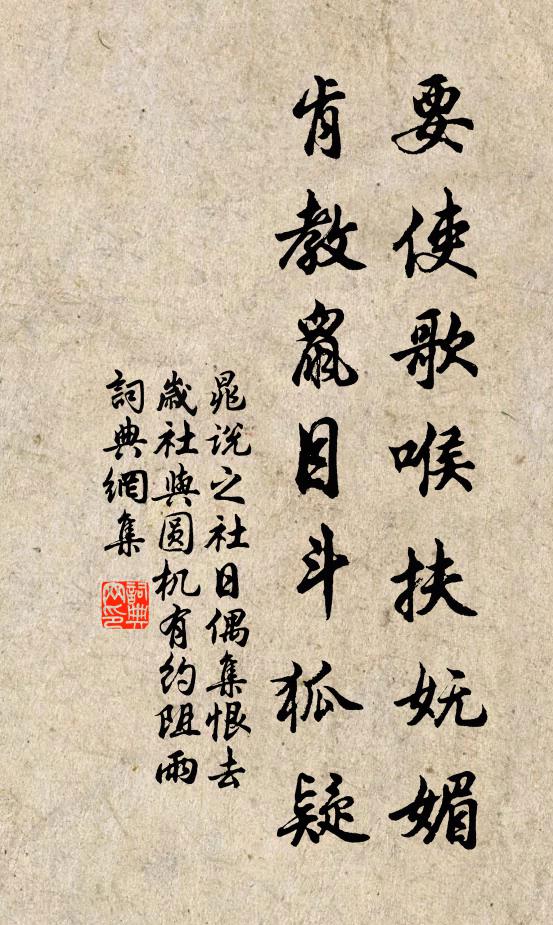 要使歌喉扶妩媚
肯教鼠目斗狐疑
晁说之社日偶集恨去
歳社與圆机有约阻雨
詞典網集
詞典網印